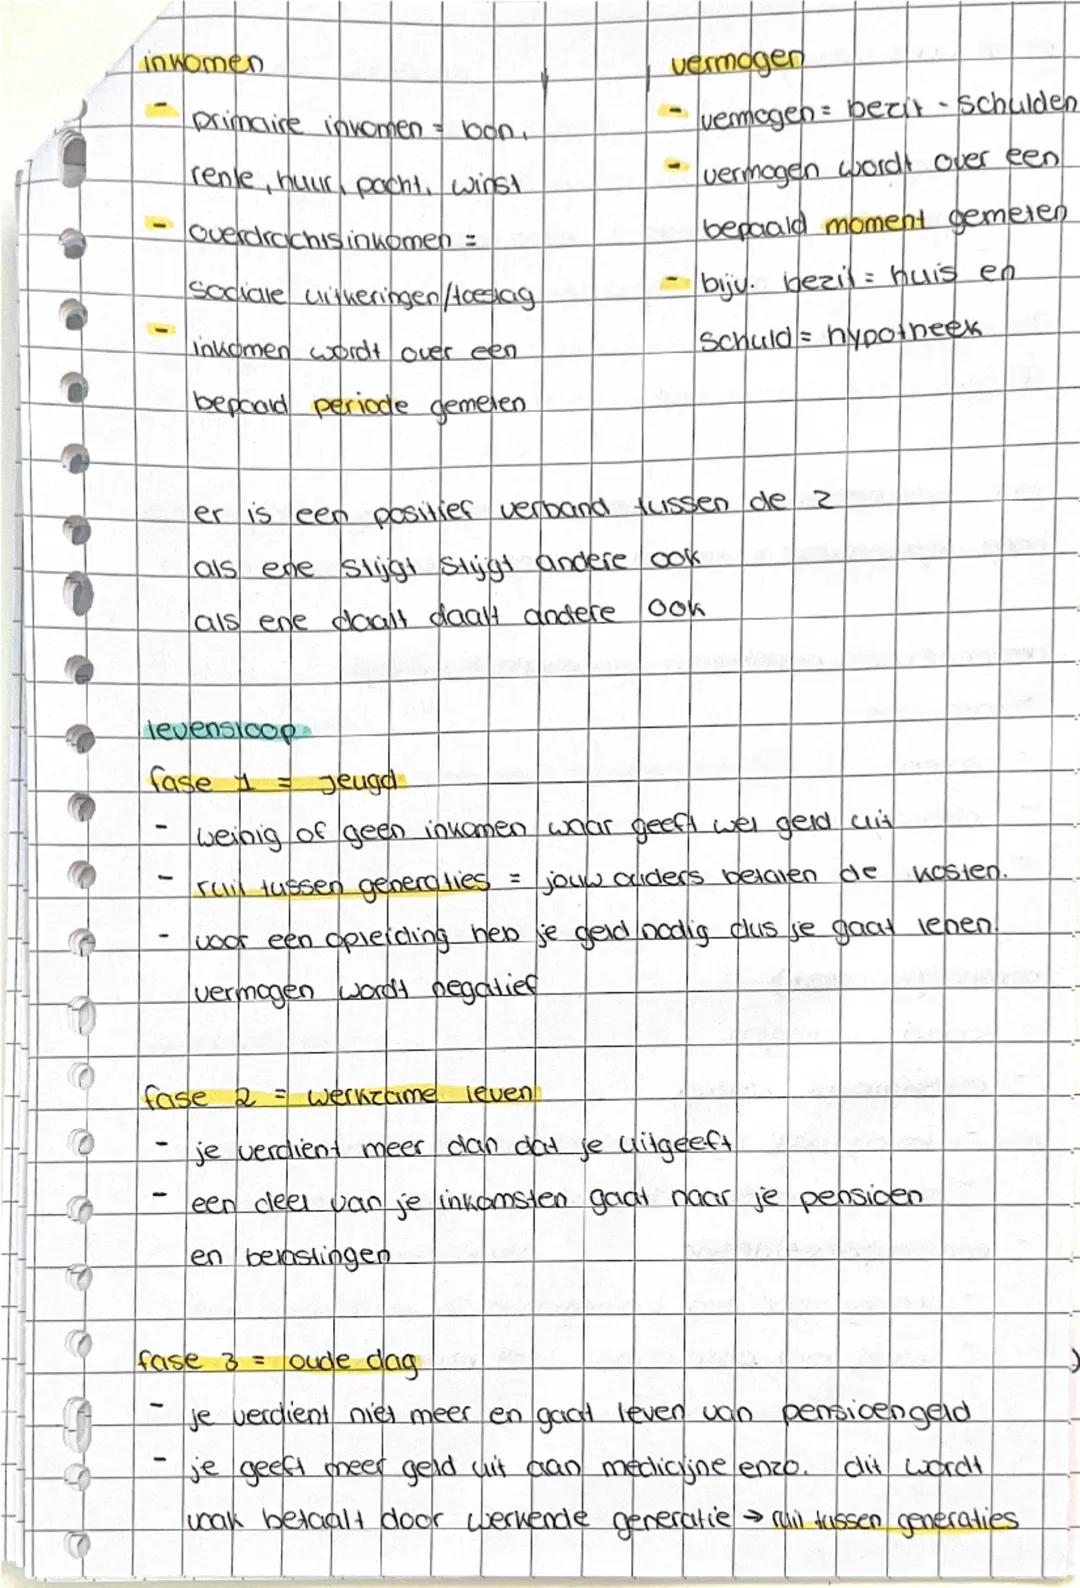 inkomen
- primaire inkomen = loon,
rente, huur, pacht, winst
- overdrachtsinkomen =
sociale uitkeringen/toeslag
- inkomen wordt over een
bepaald periode gemeten
vermogen
- vermogen = bezit - schulden
- vermogen wordt over een
bepaald moment gemeten
- bijv. bezit = huis en
schuld = hypotheek
er is een positief verband tussen de 2
als ene stijgt stijgt andere ook
als ene daalt daalt andere ook
levensloop
fase 1 = jeugd
- weinig of geen inkomen maar geeft wel geld uit
- ruil tussen generaties = jouw ouders betalen de kosten.
- voor een opleiding heb je geld nodig dus je gaat lenen.
vermogen wordt negatief
fase 2 = werkzame leven
- je verdient meer dan dat je uitgeeft
- een deel van je inkomsten gaat naar je pensioen
en belastingen
fase 3 = oude dag
- je verdient niet meer en gaat leven van pensioengeld
- je geeft meer geld uit aan medicijne enzo. dit wordt
vaak betaalt door werkende generatie → ruil tussen generaties